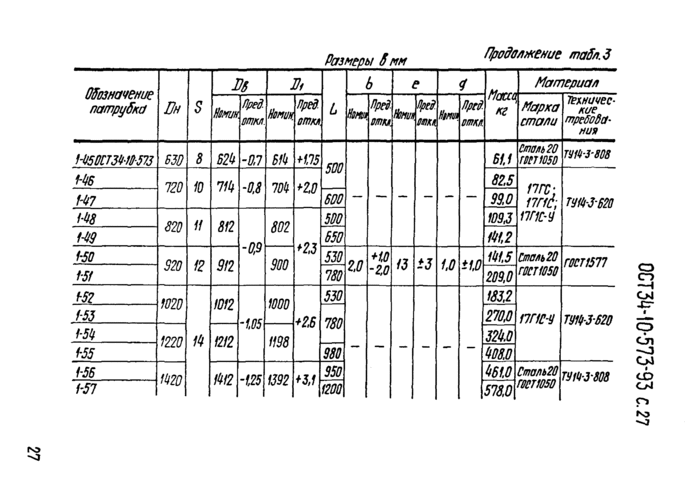 Продолжение табл.3
Размеры в мм
Обозначение патрубка | Dн | S | Dв | D1 | L | b | e | g | Масса, кг | Материал
Номин. | Пред. откл. | Номин. | Пред. откл. | Номин. | Пред. откл. | Номин. | Пред. откл. | Номин. | Пред. откл. | Марка стали | Технические требования
1-45 ОСТ34-10-573 | 630 | 8 | 624 | -0,7 | 614 | +1,75 | 500 | – | – | – | – | – | – | 61,1 | Сталь 20 ГОСТ1050 | ТУ14-3-808
1-46 | 720 | 10 | 714 | -0,8 | 704 | +2,0 | 82,5 | 17ГС; 17Г1С; 17Г1С-У | ТУ14-3-620
1-47 | 600 | 99,0
1-48 | 820 | 11 | 812 | -0,9 | 802 | +2,3 | 500 | 109,3
1-49 | 650 | 141,2
1-50 | 920 | 12 | 912 | 900 | 530 | 2,0 | +1,0 -2,0 | 13 | ±3 | 1,0 | ±1,0 | 141,5 | Сталь 20 ГОСТ1050 | ГОСТ1577
1-51 | 780 | 209,0
1-52 | 1020 | 14 | 1012 | -1,05 | 1000 | +2,6 | 530 | – | – | – | – | – | – | 183,2 | 17Г1С-У | ТУ14-3-620
1-53 | 780 | 270,0
1-54 | 1220 | 1212 | 1198 | 324,0
1-55 | 980 | 408,0
1-56 | 1420 | 1412 | -1,25 | 1392 | +3,1 | 950 | 461,0 | Сталь 20 ГОСТ1050 | ТУ14-3-808
1-57 | 1200 | 578,0
ОСТ34-10-573-93 с.27
27